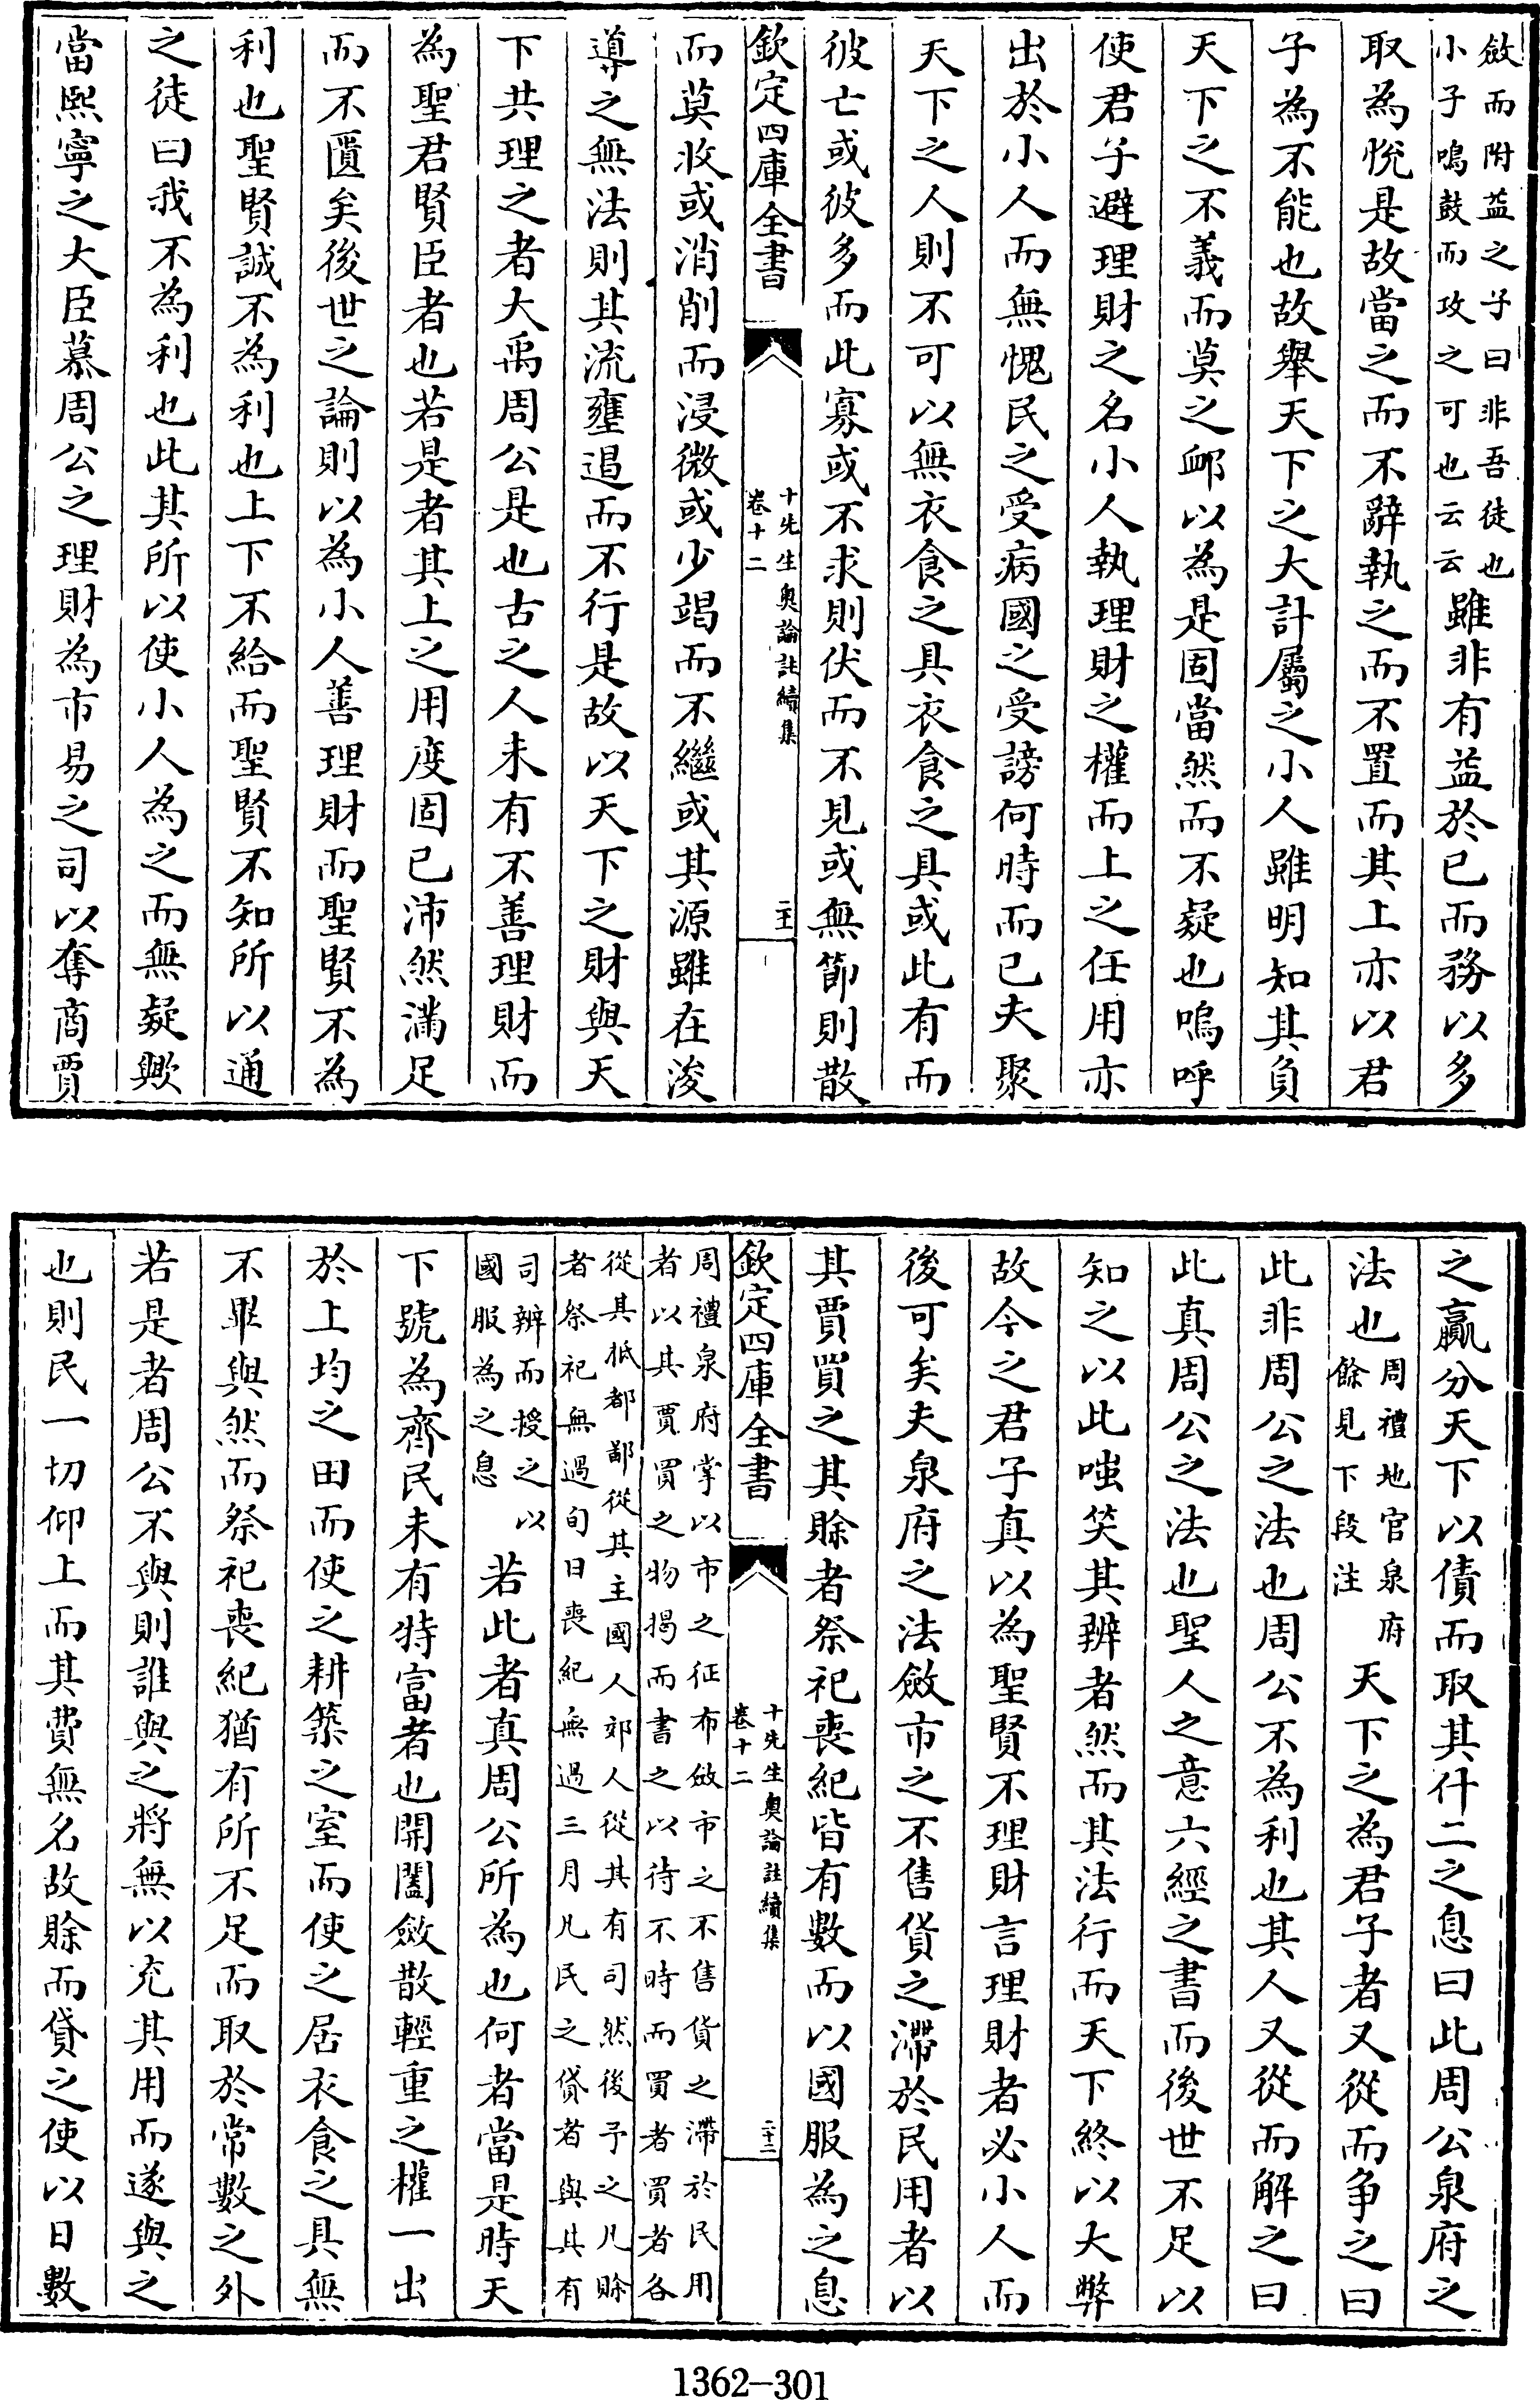 斂而附益之子曰非吾徒也
小子鳴鼓而攻之可也云云
雖非有益於已而務以多
取為悅是故當之而不辭執之而不置而其上亦以君
子為不能也故舉天下之大計屬之小人雖明知其負
天下之不義而莫之衈以為是固當然而不疑也嗚呼
使君子避理財之名小人執理財之權而上之任用亦
出於小人而無愧民之受病國之受謗何時而已夫聚
天下之人則不可以無衣食之具衣食之具或此有而
彼亡或彼多而此寡或不求則伏而不見或無節則散
欽定四庫全書
十先生奧論註續集
卷十二
二十一
而莫收或消削而浸微或少竭而不繼或其源雖在浚
導之無法則其流壅遏而不行是故以天下之財與天
下共理之者大禹周公是也古之人未有不善理財而
為聖君賢臣者也若是者其上之用度固已沛然滿足
而不匱矣後世之論則以為小人善理財而聖賢不為
利也聖賢誠不為利也上下不給而聖賢不知所以通
之徒曰我不為利也此其所以使小人為之而無疑歟
當熙寧之大臣慕周公之理財為市易之司以奪商賈
之贏分天下以債而取其什二之息曰此周公泉府之
法也
周禮地官泉府
餘見下段注
天下之為君子者又從而爭之曰
此非周公之法也周公不為利也其人又從而解之曰
此真周公之法也聖人之意六經之書而後世不足以
知之以此嗤笑其辨者然而其法行而天下終以大弊
故今之君子真以為聖賢不理財言理財者必小人而
後可矣夫泉府之法斂市之不售貨之滯於民用者以
其賈買之其賒者祭祀喪紀皆有數而以國服為之息
欽定四庫全書
十先生奧論註續集
卷十二
二十二
周禮泉府掌以市之征布斂市之不售貨之滯於民用
者以其賈買之物揭而書之以待不時而買者買者各
從其抵都鄙從其主國人郊人從其有司然後予之凡賒
者祭祀無過旬日喪紀無過三月凡民之貸者與其有
司辨而授之以
國服為之息
若此者真周公所為也何者當是時天
下號為齊民未有特富者也開闔斂散輕重之權一出
於上均之田而使之耕築之室而使之居衣食之具無
不畢與然而祭祀喪紀猶有所不足而取於常數之外
若是者周公不與則誰與之將無以充其用而遂與之
也則民一切仰上而其費無名故賒而貸之使以日數
1362-301